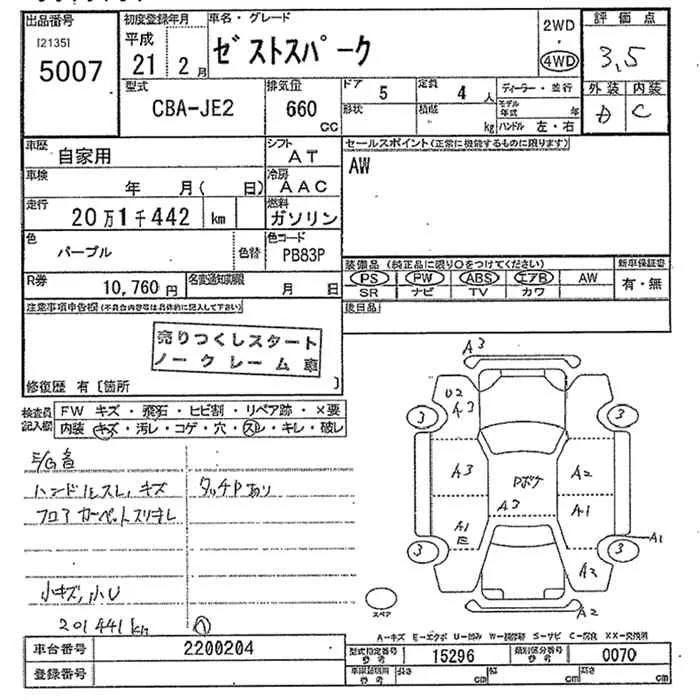 出品番号 初度登録年月 車名・グレード 2WD 評価点
[2135] 平成
5007 21 2月 ゼストスパーク 4WD 3.5
型式 排気量 ドア 5 定員 4人 ディーラー・並行 外装 内装
CBA-JE2 660 cc 形状 積載 kg モデル年式 年 D C
ハンドル 左・右
車歴 自家用 シフト AT セールスポイント(正常に機能するものに限ります)
車検 年 月( 日) 冷房 AAC AW
走行 20万1千442 km 燃料 ガソリン
色 パープル 色替 色コード PB83P
装備品(純正品に限り○をつけてください) 新車保証書
R券 10,760円 名変通知期限 月 日 PS PW ABS エアB AW 有・無
SR ナビ TV カワ
注意事項申告欄(不具合内容等は具体的に記入して下さい) 後日品
売りつくしスタート
ノークレーム車
修復歴 有〔箇所 〕
検査員記入欄 FW キズ・飛石・ヒビ割・リペア跡・×要
内装 キズ・汚レ・コゲ・穴・スレ・キレ・破レ
E/G音
ハンドルスレ、キズ タッチPあり
フロアカーペットスリキレ
小キズ,小U
201441km
A3
U2
A3
3 3
A3 Pボケ A2
A2
A1 A1
E A1
3 3
A2
スペア A2
A-キズ E-エクボ U-凹み W-補修跡 S-サビ C-腐食 XX-交換済
車台番号 2200204 型式指定番号 参考 15296 類別区分番号 参考 0070
登録番号 参考 長さ cm 幅 cm 高さ cm